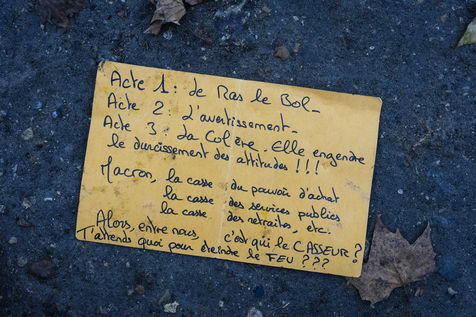 Acte 1 : de Ras le Bol -
Acte 2 : L'avertissement -
Acte 3 : La Colère. Elle engendre
le durcissement des attitudes !!!
Macron, la casse du pouvoir d'achat
la casse des services publics
la casse des retraites, etc.
Alors, entre nous, c'est qui le CASSEUR ?
T'attends quoi pour éteindre le FEU ???